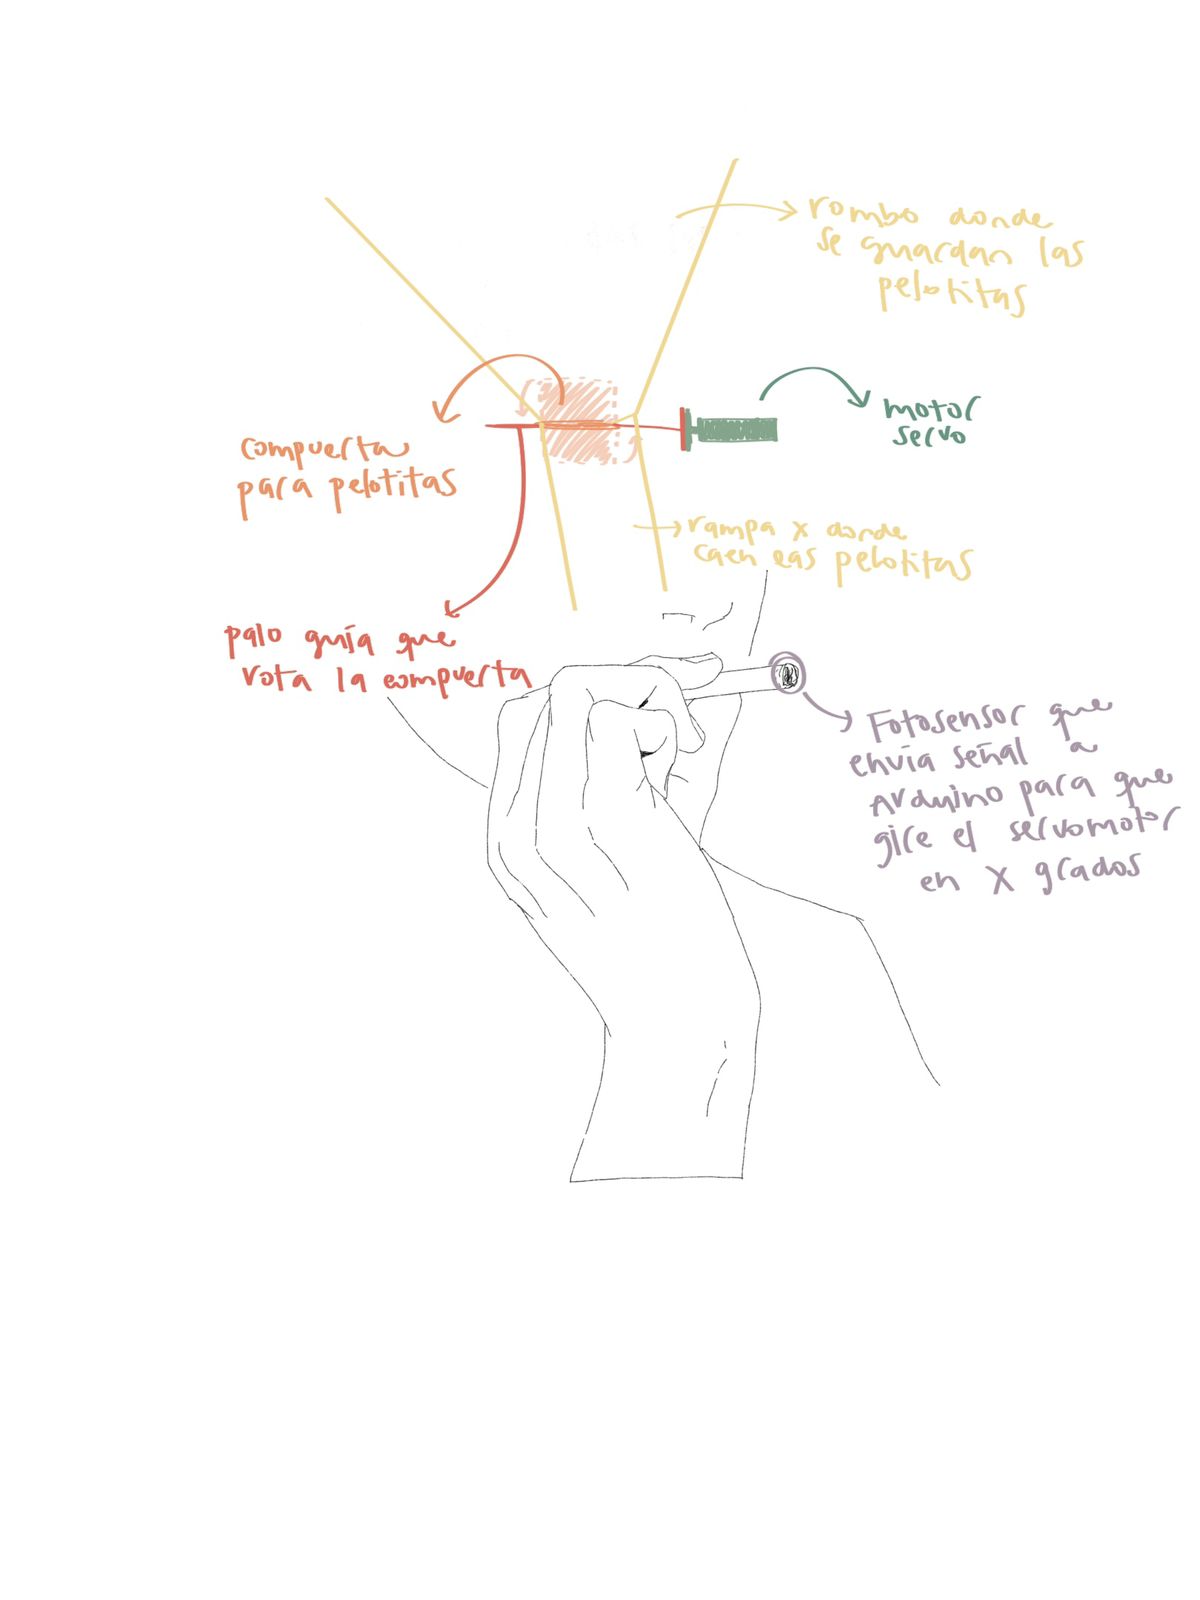 rombo donde
se guardan las
pelotitas
motor
servo
compuerta
para pelotitas
rampa x donde
caen las pelotitas
palo guía que
rota la compuerta
Fotosensor que
envia señal a
Arduino para que
gire el servomotor
en X grados